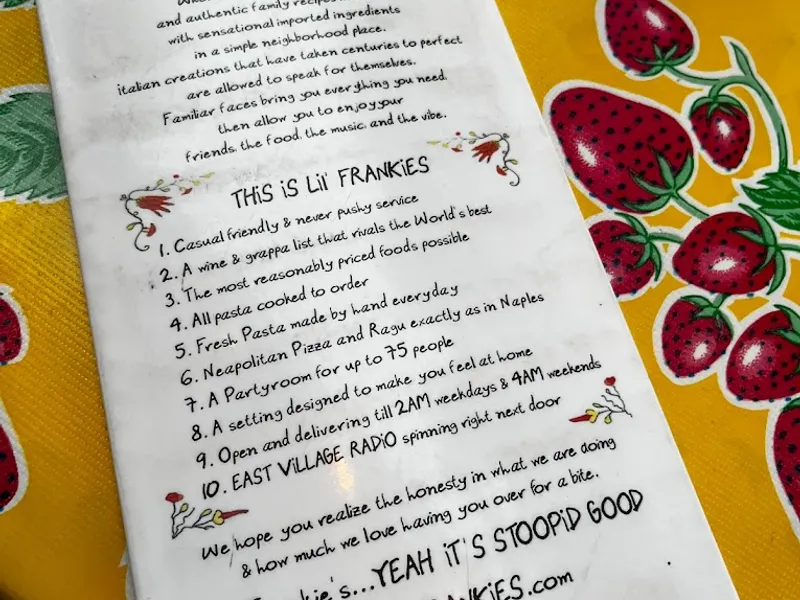 and authentic family recipes
with sensational imported ingredients
in a simple neighborhood place.
italian creations that have taken centuries to perfect
are allowed to speak for themselves.
Familiar faces bring you everything you need,
then allow you to enjoy your
friends, the food, the music, and the vibe.
THiS iS LiL' FRANKiES
1. Casual friendly & never pushy service
2. A wine & grappa list that rivals the World's best
3. The most reasonably priced foods possible
4. All pasta cooked to order
5. Fresh Pasta made by hand everyday
6. Neapolitan Pizza and Ragu exactly as in Naples
7. A Partyroom for up to 75 people
8. A setting designed to make you feel at home
9. Open and delivering till 2AM weekdays & 4AM weekends
10. EAST ViLLAGE RADiO spinning right next door
We hope you realize the honesty in what we are doing
& how much we love having you over for a bite.
YEAH iT'S STOOPiD GOOD
.com